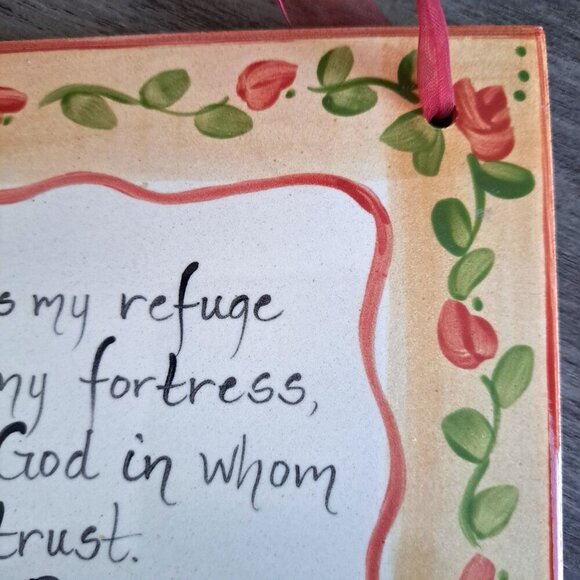 s my refuge
my fortress,
God in whom
trust.